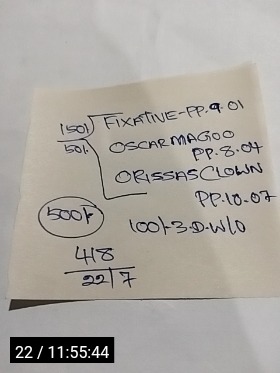 150/- FIXATIVE-PP.9.01
50/. OSCARMAGOO
PP.8.04
ORISSASCLOWN
PP.10.07
500/-
100/-3.D.W/O
418
22/7
22 / 11:55:44